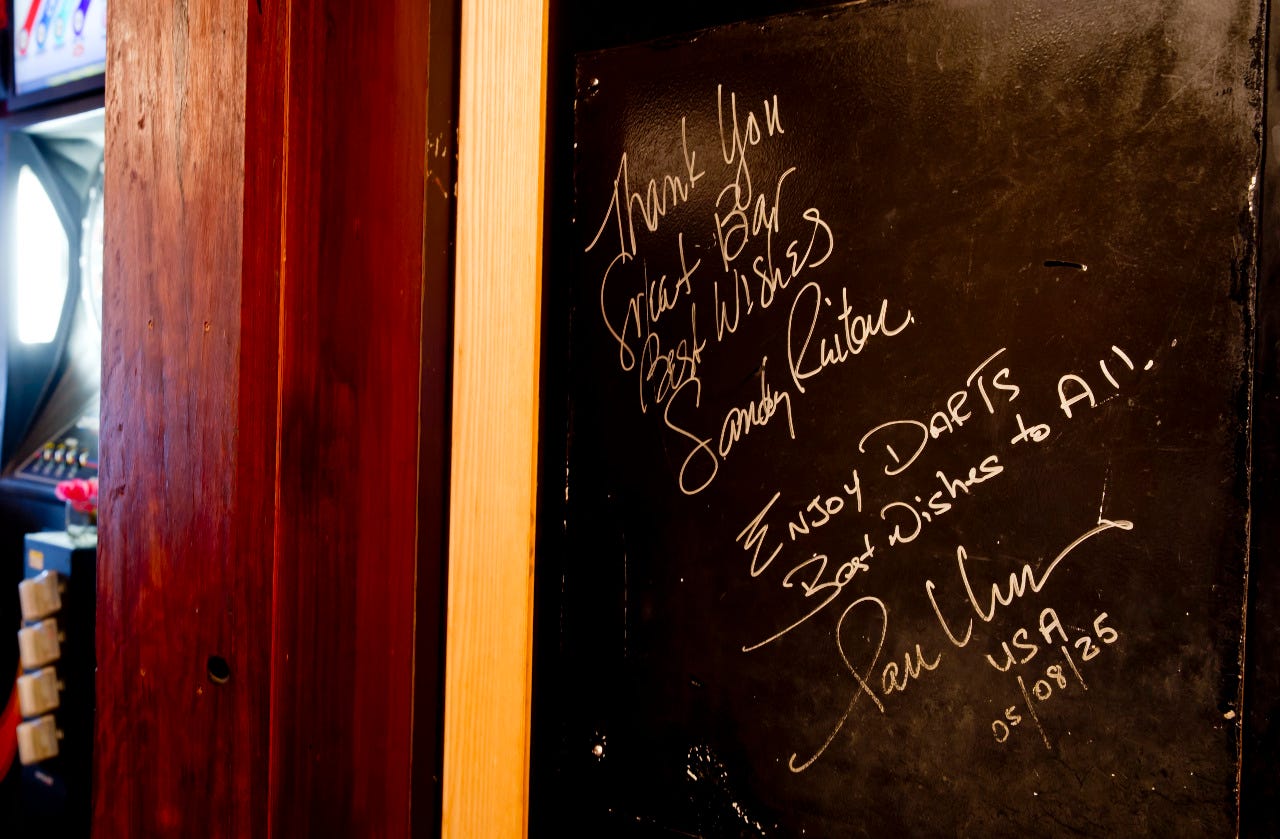 Thank You
Great Bar
Best Wishes
Sandy
ENJOY DARTS
Best Wishes to All..
USA
05/08/25